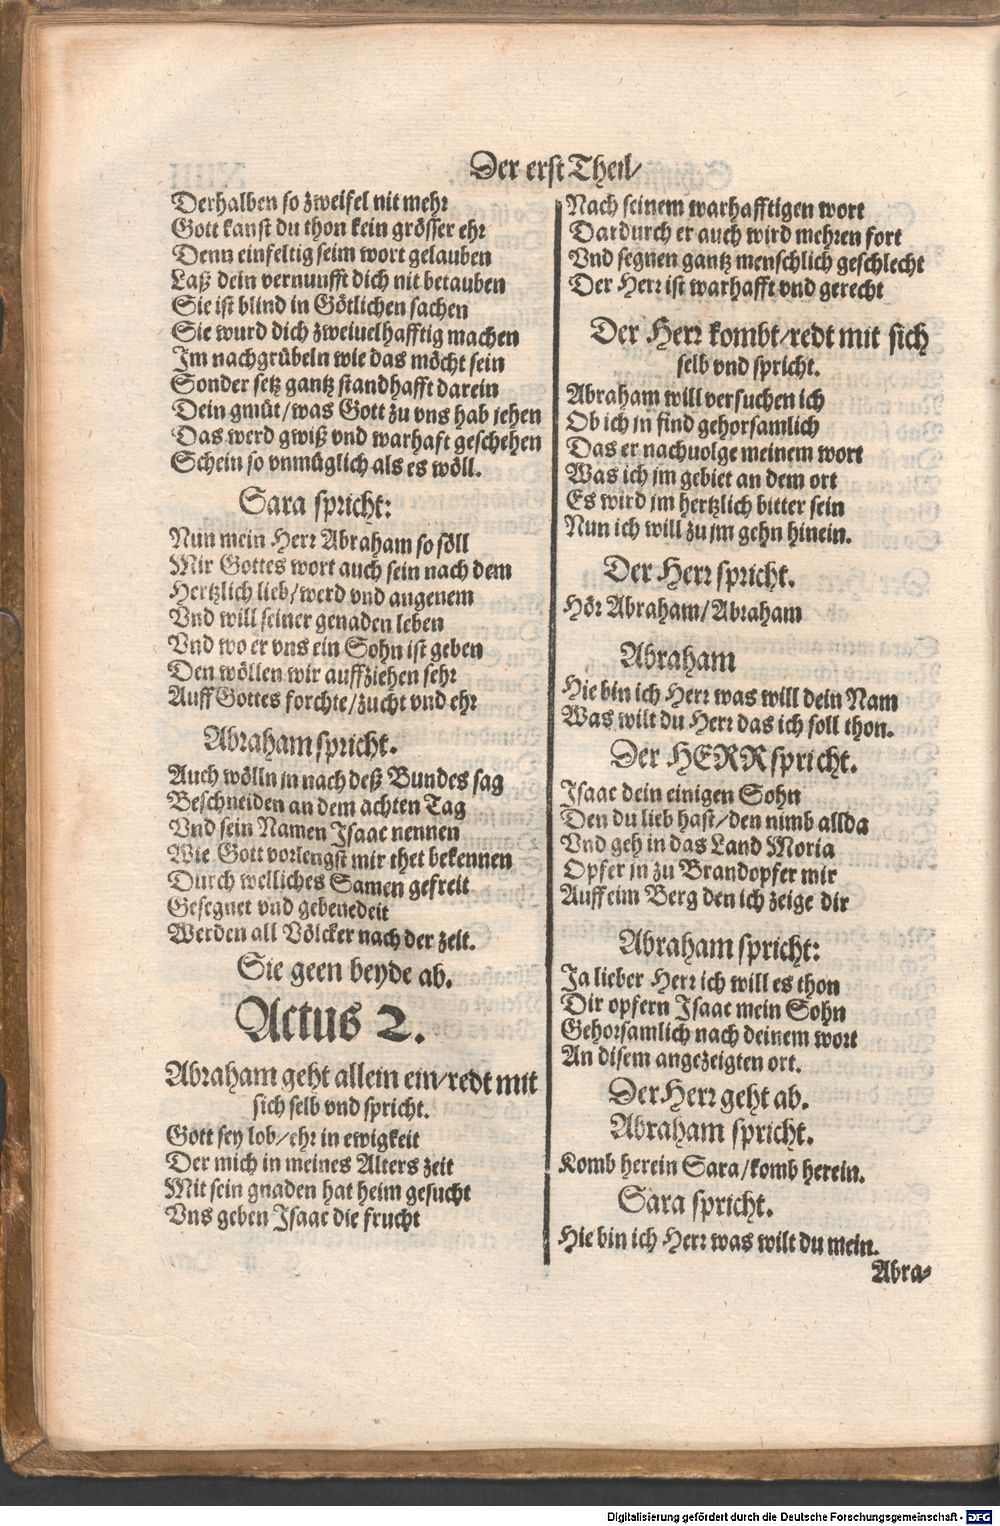 Der erst Theil/
Derhalben so zweifel nit mehr
Gott kanst du thon kein grösser ehr
Denn einfeltig seim wort gelauben
Laß dein vernunfft dich nit betauben
Sie ist blind in Götlichen sachen
Sie wurd dich zweiuelhafftig machen
Im nachgrübeln wie das möcht sein
Sonder setz gantz standhafft darein
Dein gmüt/was Gott zu vns hab jehen
Das werd gwiß vnd warhaft geschehen
Schein so vnmüglich als es wöll.
Sara spricht:
Nun mein Herr Abraham so söll
Mir Gottes wort auch sein nach dem
Hertzlich lieb/werd vnd angenem
Vnd will seiner genaden leben
Vnd wo er vns ein Sohn ist geben
Den wöllen wir auffziehen sehr
Auff Gottes forchte/zucht vnd ehr
Abraham spricht.
Auch wölln jn nach deß Bundes sag
Beschneiden an dem achten Tag
Vnd sein Namen Isaac nennen
Wie Gott vorlengst mir thet bekennen
Durch welliches Samen gefreit
Gesegnet vnd gebenedeit
Werden all Völcker nach der zeit.
Sie geen beyde ab.
Actus 2.
Abraham geht allein ein/redt mit
sich selb vnd spricht.
Gott sey lob/ehr in ewigkeit
Der mich in meines Alters zeit
Mit sein gnaden hat heim gesucht
Vns geben Isaac die frucht
Nach seinem warhafftigen wort
Dardurch er auch wird mehren fort
Vnd segnen gantz menschlich geschlecht
Der Herr ist warhafft vnd gerecht
Der Herr kombt/redt mit sich
selb vnd spricht.
Abraham will versuchen ich
Ob ich jn find gehorsamlich
Das er nachuolge meinem wort
Was ich jm gebiet an dem ort
Es wird jm hertzlich bitter sein
Nun ich will zu jm gehn hinein.
Der Herr spricht.
Hör Abraham/Abraham
Abraham
Hie bin ich Herr was will dein Nam
Was wilt du Herr das ich soll thon.
Der HERR spricht.
Isaac dein einigen Sohn
Den du lieb hast/den nimb allda
Vnd geh in das Land Moria
Opfer jn zu Brandopfer mir
Auff eim Berg den ich zeige dir
Abraham spricht:
Ja lieber Herr ich will es thon
Dir opfern Isaac mein Sohn
Gehorsamlich nach deinem wort
An disem angezeigten ort.
Der Herr geht ab.
Abraham spricht.
Komb herein Sara/komb herein.
Sara spricht.
Hie bin ich Herr was wilt du mein.
Abra-
Digitalisierung gefördert durch die Deutsche Forschungsgemeinschaft - DFG